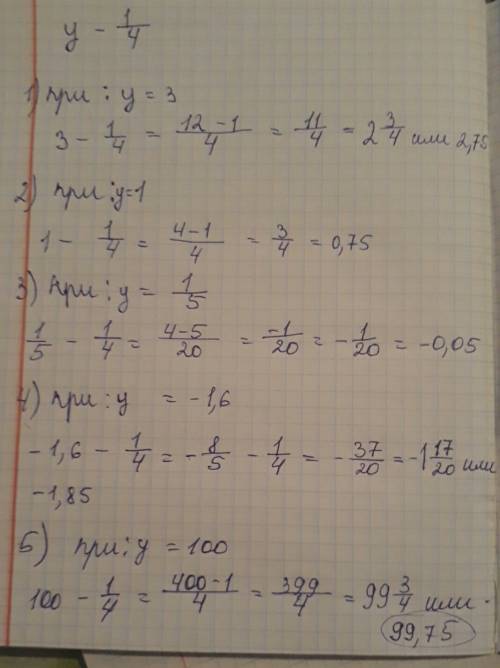 y - 1/4
1) при: y = 3
3 - 1/4 = (12-1)/4 = 11/4 = 2 3/4 или 2,75
2) при: y=1
1 - 1/4 = (4-1)/4 = 3/4 = 0,75
3) при: y = 1/5
1/5 - 1/4 = (4-5)/20 = -1/20 = -1/20 = -0,05
4) при: y = -1,6
-1,6 - 1/4 = -8/5 - 1/4 = -37/20 = -1 17/20 или
-1,85
5) при: y = 100
100 - 1/4 = (400-1)/4 = 399/4 = 99 3/4 или
99,75